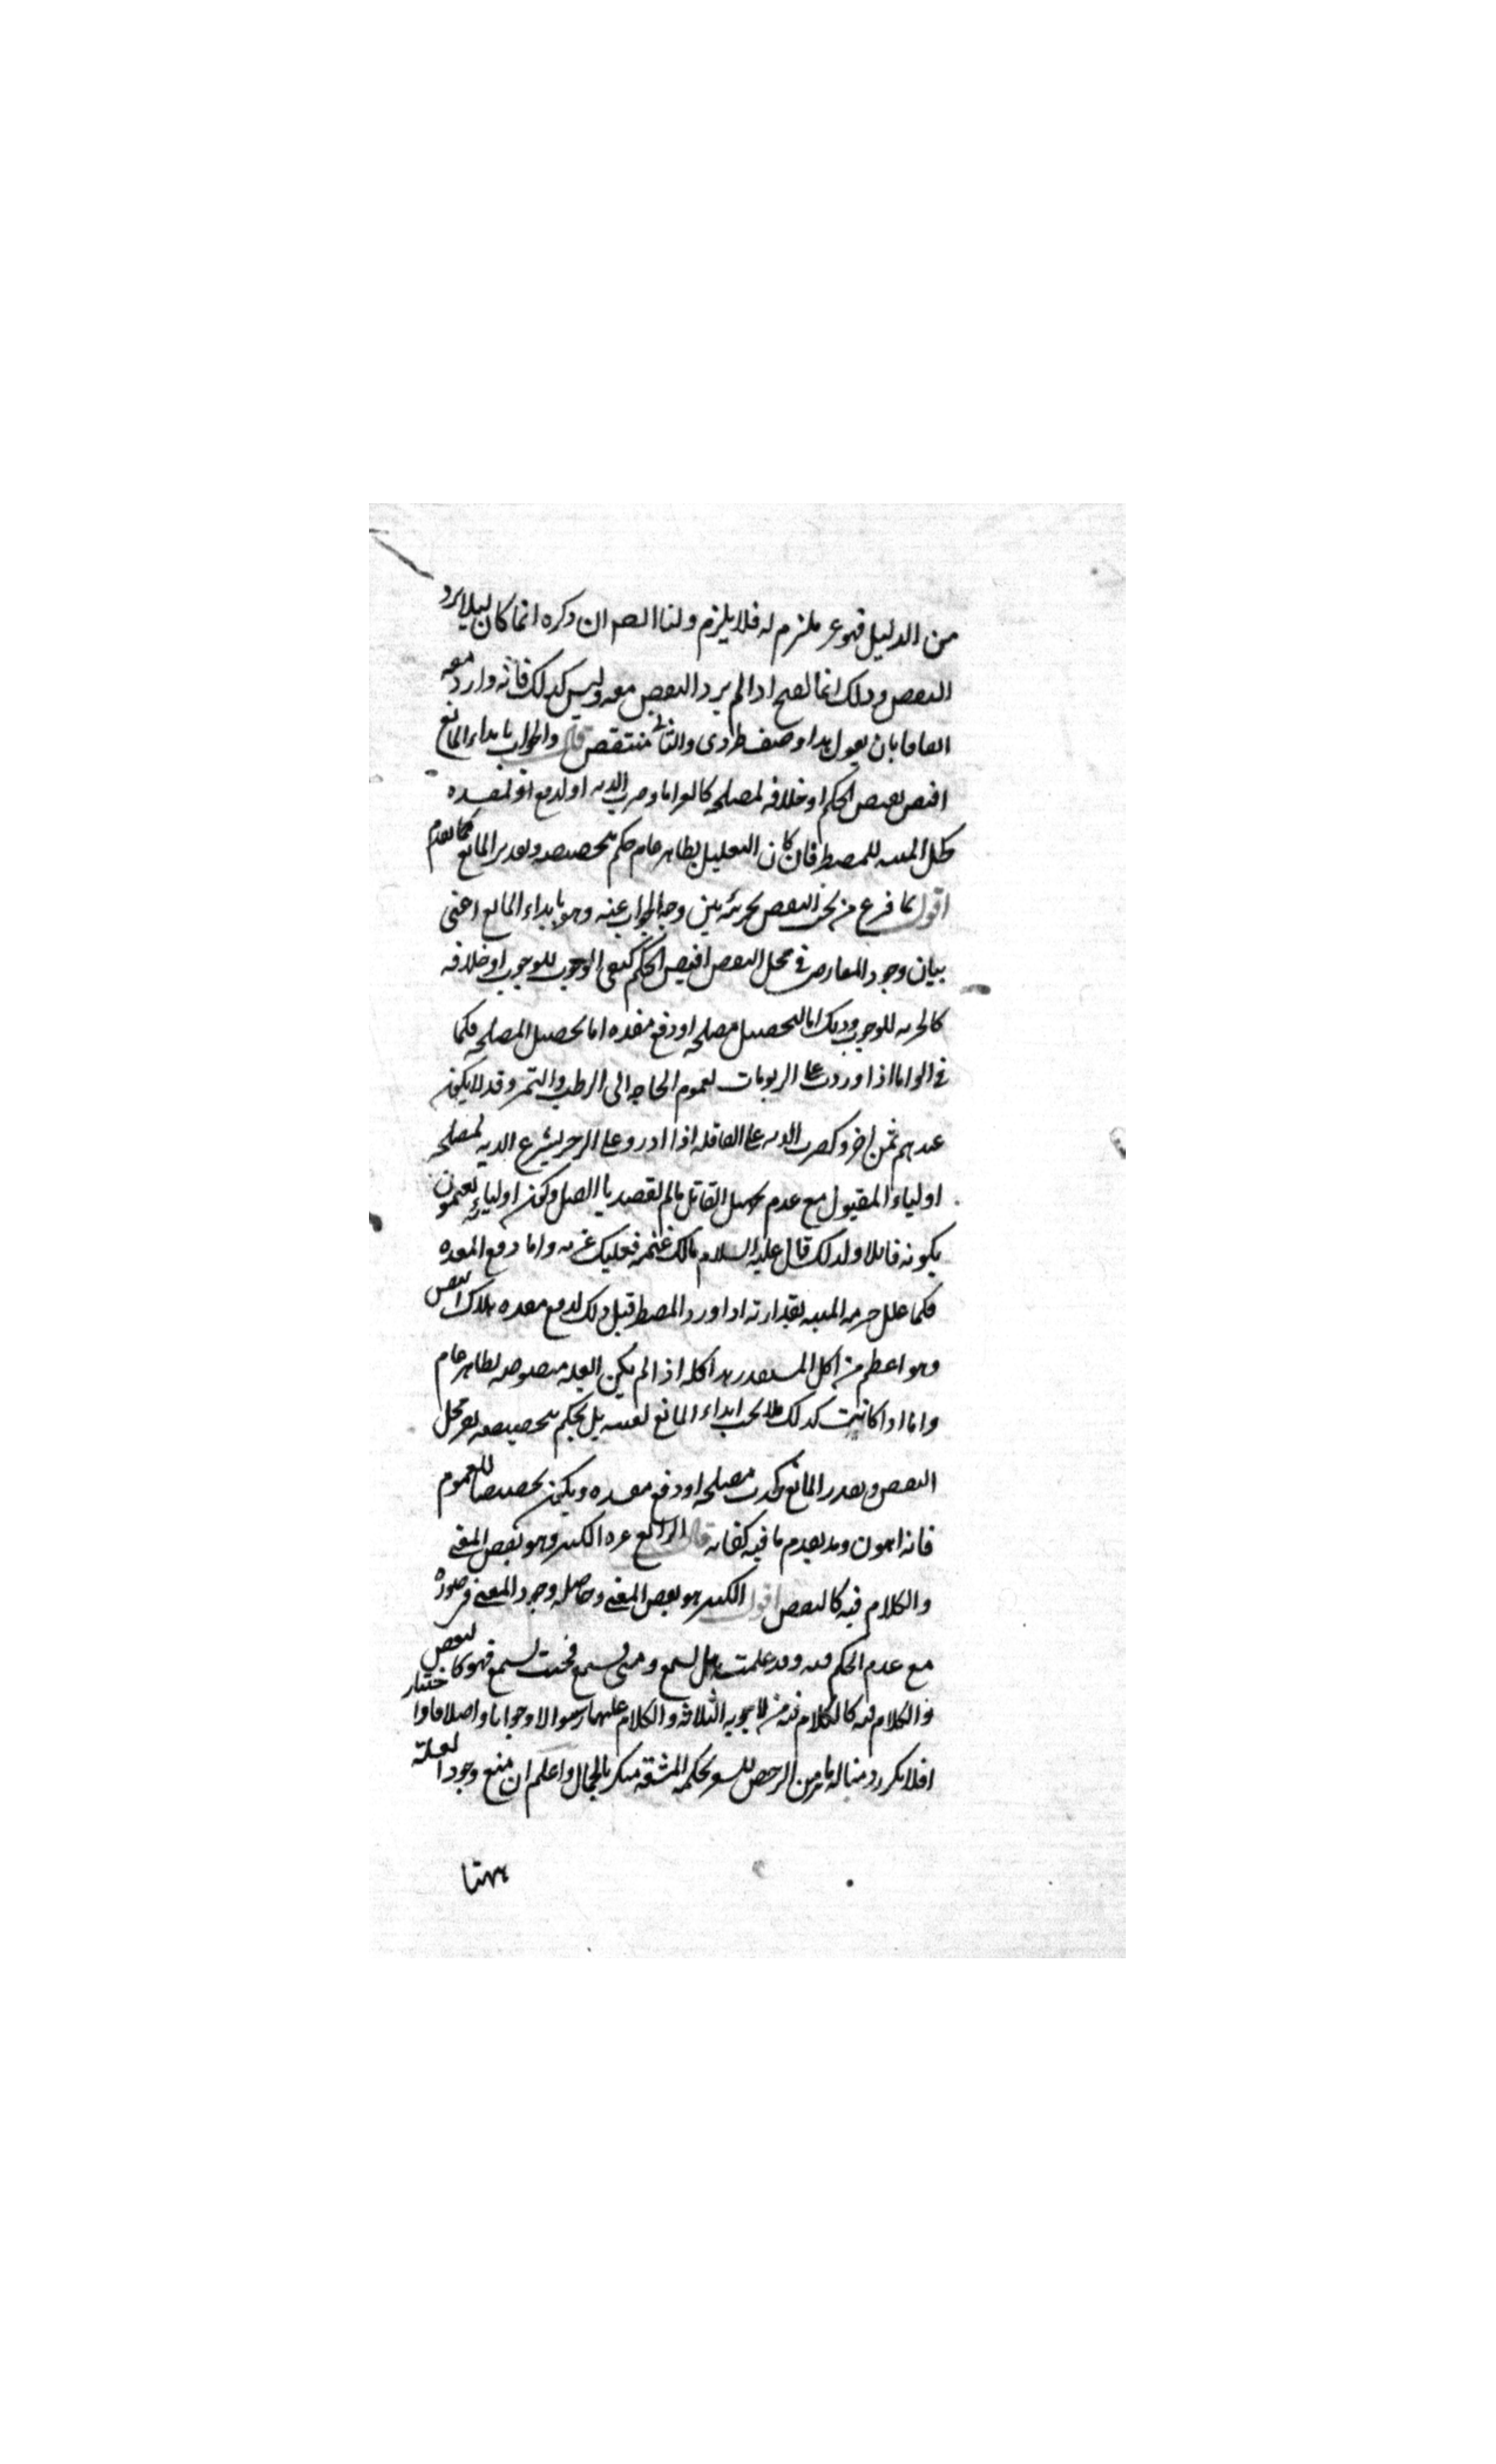 من الدليل فهو غير ملتزم له فلا يلزم ولنا ايضا ان ذكره انما كان ليلا يرد
النقض وذلك انما يصح اذا لم يرد النقض معه وليس كذلك فانه وارد معه
اتفاقا بان يقول هذا وصف طردي والباقي منتقض قال والجواب بابداء المانع
اقتضى نقيض الحكم او خلافه لمصلحة كالعرايا وضرب الدية او لدفع لمفسدة
كحل الميتة للمضطر فان كان التعليل بظاهر عام حكم بتخصيصه وتقدير المانع كما تقدم
اقول لما فرغ من بحث النقض بين وجه الجواب عنه وهو بابداء المانع اعني
بيان وجود المعارض في محل النقض اقتضى الحكم كنفي الوجوب للوجوب او خلافه
كالحرمة للوجوب وذلك اما لتحصيل مصلحة او دفع مفسدة اما تحصيل المصلحة فكما
في العرايا اذا وردت على الربويات لعموم الحاجة الى الرطب والتمر وقد لا يكون
عندهم ثمن اخر وكضرب الدية على العاقلة اذا اورد على الزجر لشرع الدية لمصلحة
اولياء المقتول مع عدم تحميل القاتل ما لم يقصد باالقتل وكون اوليائه يغنمون
بكونه قاتلا ولذلك قال عليه السلام مالك غنمه فعليك غرمه واما دفع المفسدة
فكما علل حرمة الميتة بقذارته اذا ورد المضطر قيل ذلك لدفع مفسدة هلاك النفس
وهو اعظم من اكل المستقذر هذا كله اذا لم يكن العلة منصوصة بظاهر عام
واما اذا كانت كذلك فلا يجب ابداء المانع لعينه بل يحكم بتخصيصه بغير محل
النقض وتقدير المانع مصلحة او دفع مفسدة ويكون تخصيصا للعموم
فانه اهون وقد تقدم ما فيه كفاية قال الرابع عشر الكسر وهو نقض المعنى
والكلام فيه كالنقض اقول الكسر هو نقض المعنى وحاصله وجود المعنى في صورة
مع عدم الحكم فيه وقد علمت هل يسمع ومتى يسمع فحيث يسمع فهو كالنقض
والكلام فيه كالكلام فيه من الاجوبة الثلاثة والكلام عليها سوالا وجوابا واختيار
افلا نكرر مثاله ما من الرخص للسفر لحكمة المشقة منكر بالحمال واعلم ان منع وجود العلة
ههنا